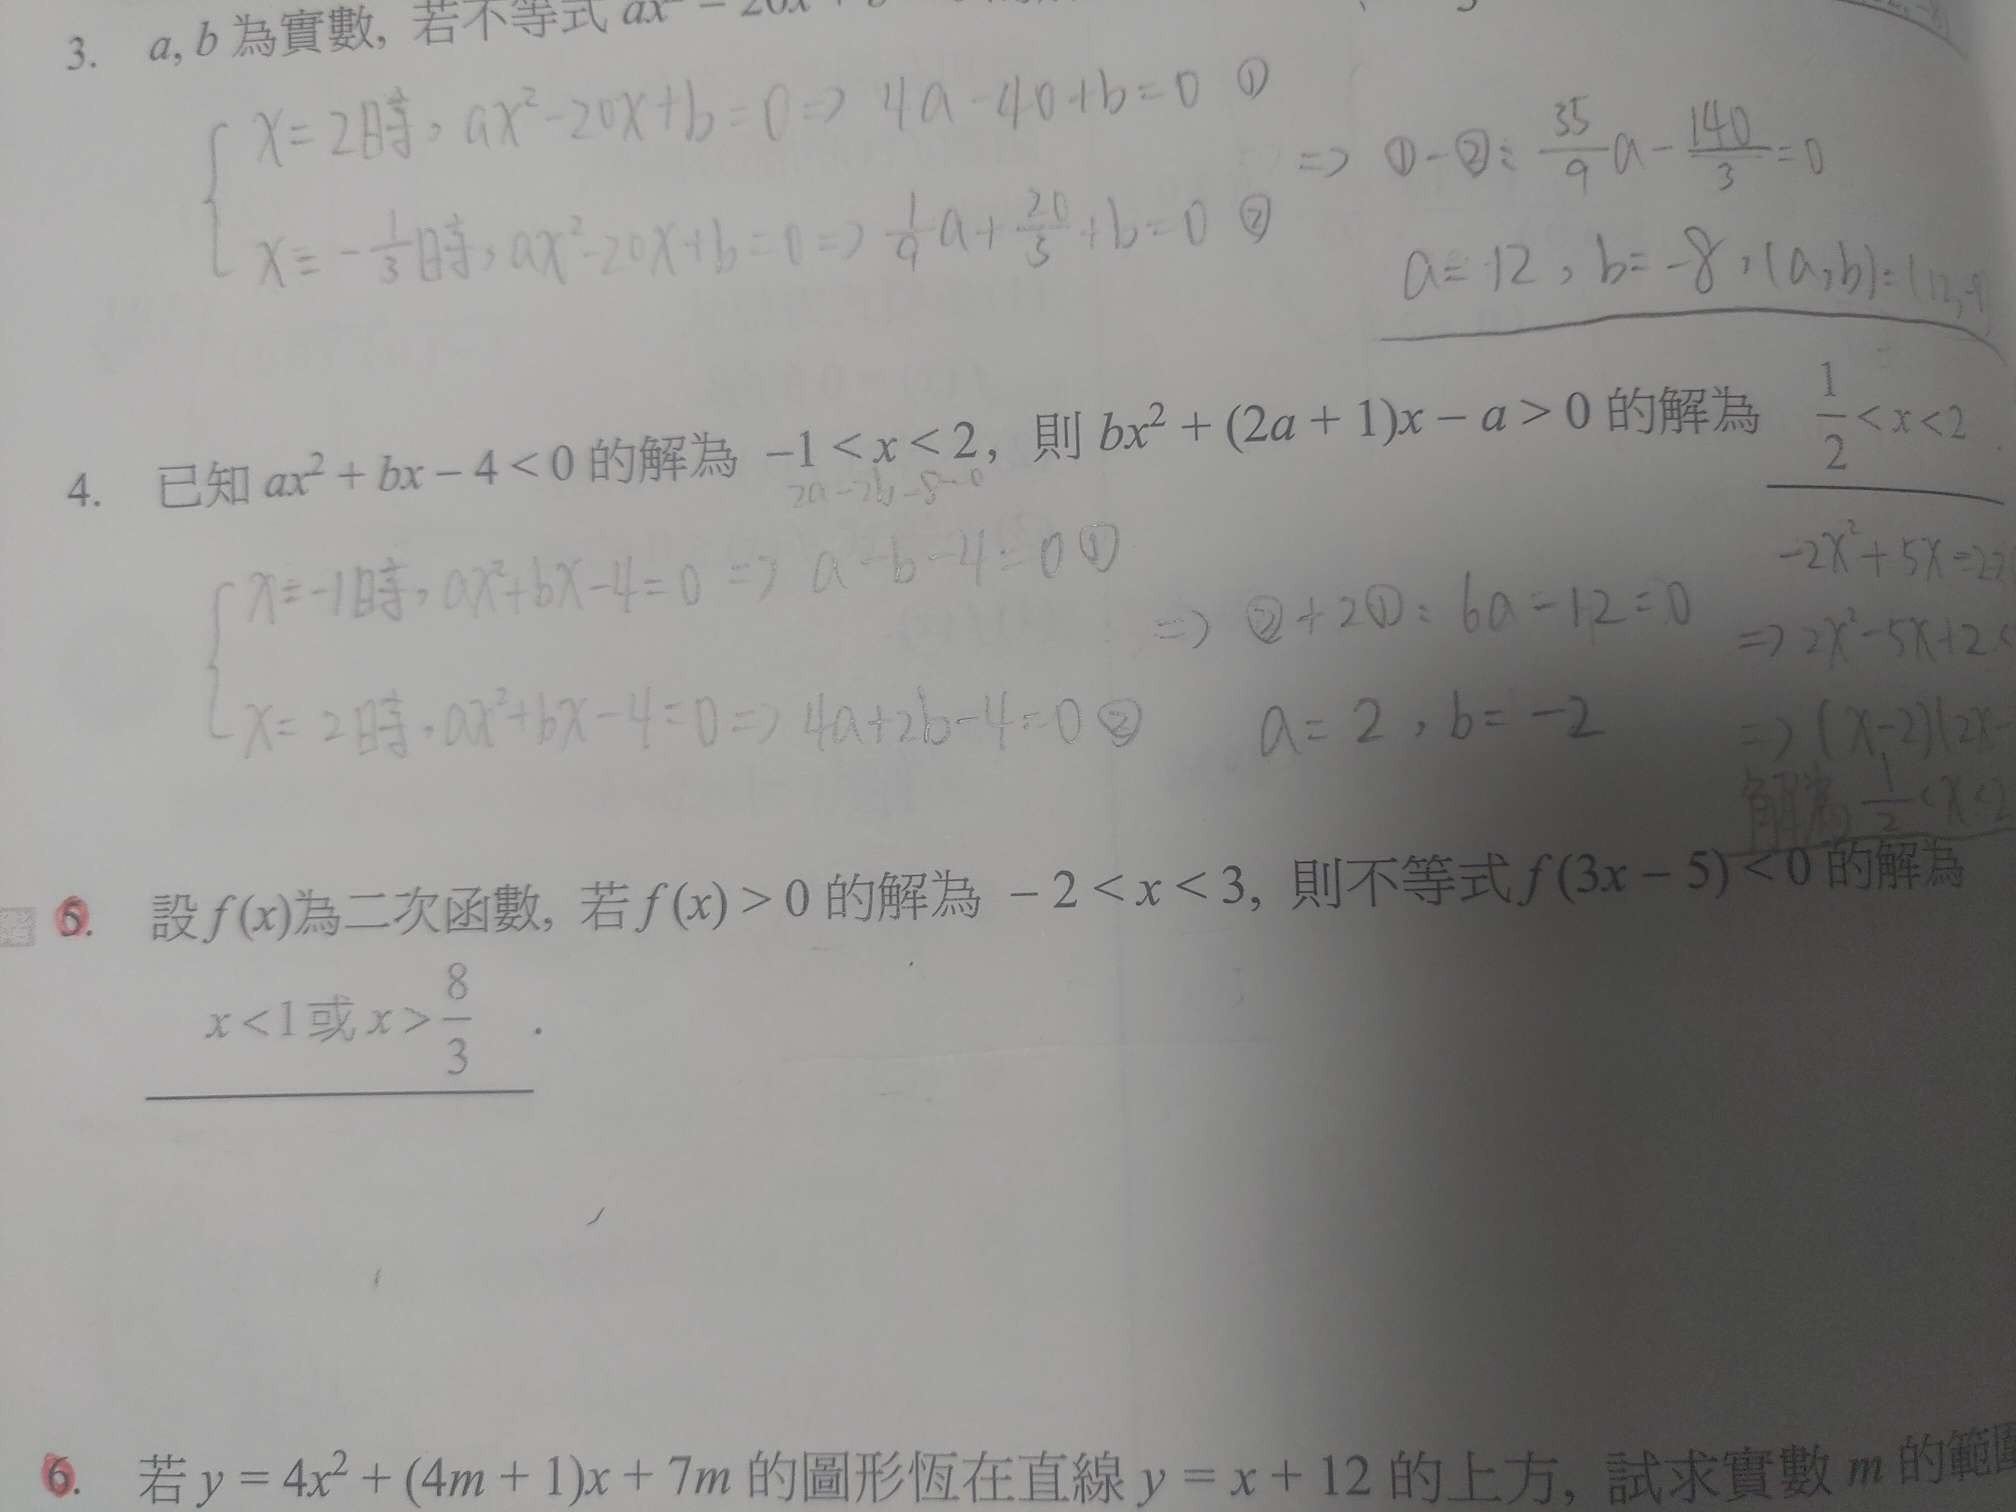 3. a, b 為實數, 若不等式 ax² − 20x + b
x = 2時, ax² − 20x + b = 0 => 4a − 40 + b = 0 ①
x = −1/3時, ax² − 20x + b = 0 => 1/9 a + 20/3 + b = 0 ②
=> ① − ②: 35/9 a − 140/3 = 0
a = 12, b = −8, (a, b) = (12, −8)
4. 已知 ax² + bx − 4 < 0 的解為 −1 < x < 2, 則 bx² + (2a + 1)x − a > 0 的解為 1/2 < x < 2
2a − 2b − 8 = 0
x = −1時, ax² + bx − 4 = 0 => a − b − 4 = 0 ①
x = 2時, ax² + bx − 4 = 0 => 4a + 2b − 4 = 0 ②
=> ② + 2①: 6a − 12 = 0
a = 2, b = −2
−2x² + 5x − 2 >
=> 2x² − 5x + 2 <
=> (x − 2)(2x −
解為 1/2 < x < 2
5. 設 f(x)為二次函數, 若 f(x) > 0 的解為 − 2 < x < 3, 則不等式 f(3x − 5) < 0 的解為
x < 1 或 x > 8/3 .
6. 若 y = 4x² + (4m + 1)x + 7m 的圖形恆在直線 y = x + 12 的上方, 試求實數 m 的範圍